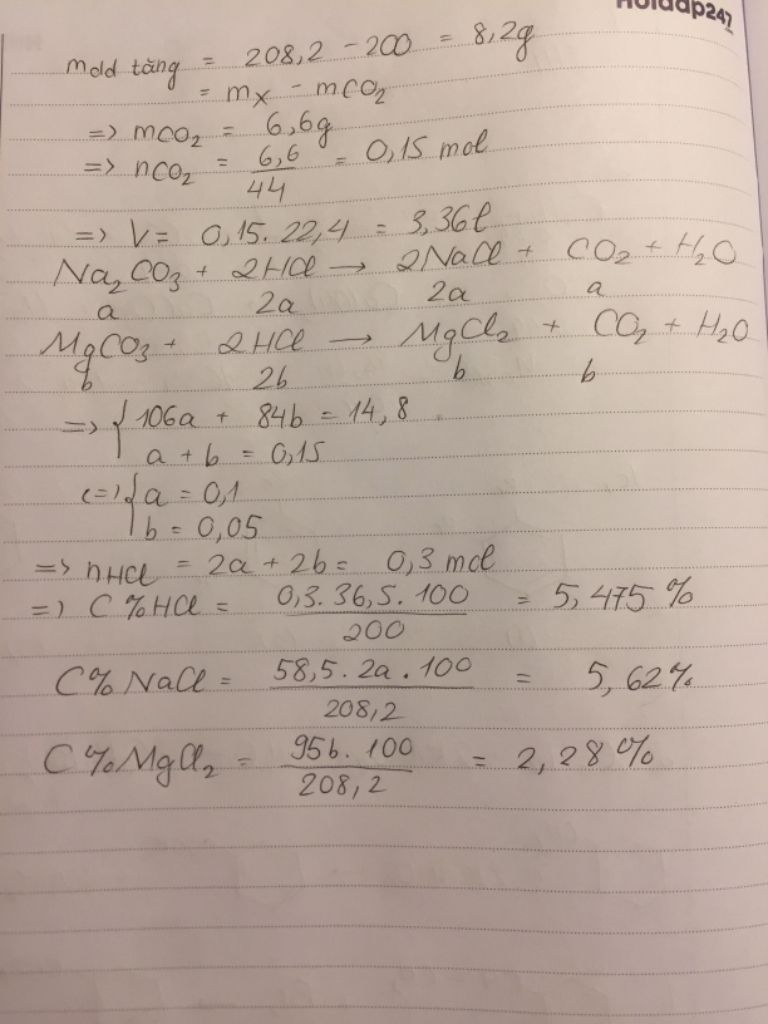 Hoidap247
mdd tăng = 208,2 - 200 = 8,2g
= mX - mCO2
=> mCO2 = 6,6g
=> nCO2 = 6,6/44 = 0,15 mol
=> V = 0,15. 22,4 = 3,36l
Na2CO3 + 2HCl → 2NaCl + CO2 + H2O
a 2a 2a a
MgCO3 + 2HCl → MgCl2 + CO2 + H2O
b 2b b b
=> { 106a + 84b = 14,8
a + b = 0,15
(=) { a = 0,1
b = 0,05
=> nHCl = 2a + 2b = 0,3 mol
=) C%HCl = 0,3. 36,5. 100/200 = 5,475%
C% NaCl = 58,5. 2a. 100/208,2 = 5,62%
C%MgCl2 = 95b. 100/208,2 = 2,28%